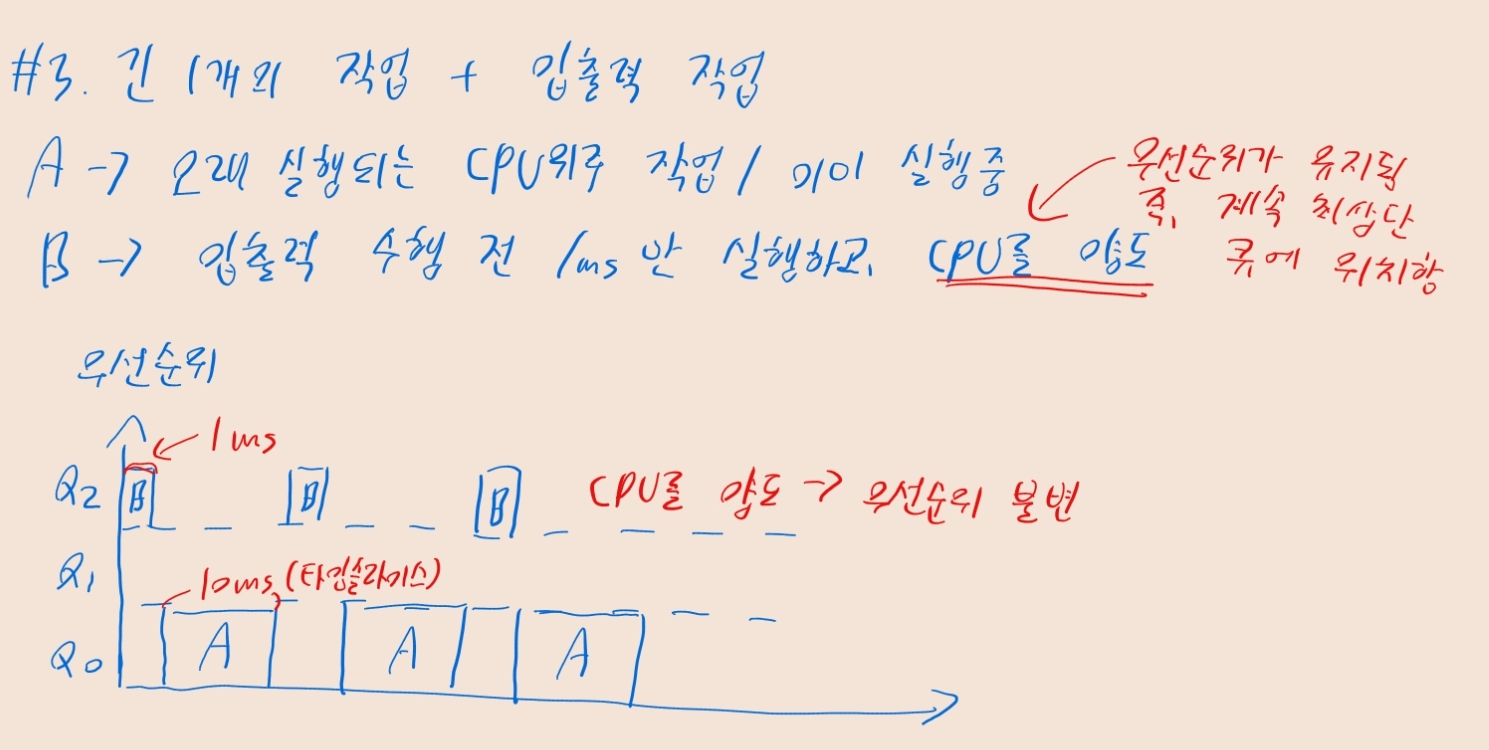 #3. 긴 1개의 작업 + 입출력 작업
A → 오래 실행되는 CPU위주 작업 / 이미 실행중
우선순위가 유지됨
즉, 계속 최상단
큐에 위치함
B → 입출력 수행 전 1ms만 실행하고, CPU를 양도
우선순위
1ms
Q2 B B B CPU를 양도 → 우선순위 불변
Q1
10ms (타임슬라이스)
Q0 A A A